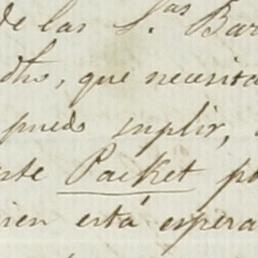 de las S.as Bar
dho, que necesita
puedo suplir,
este Packet po
ien está espera